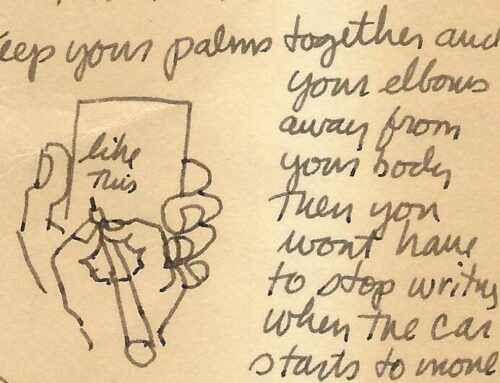 eep your palms together and
your elbows
away from
your body
then you
wont have
to stop writing
when the car
starts to move
like
this